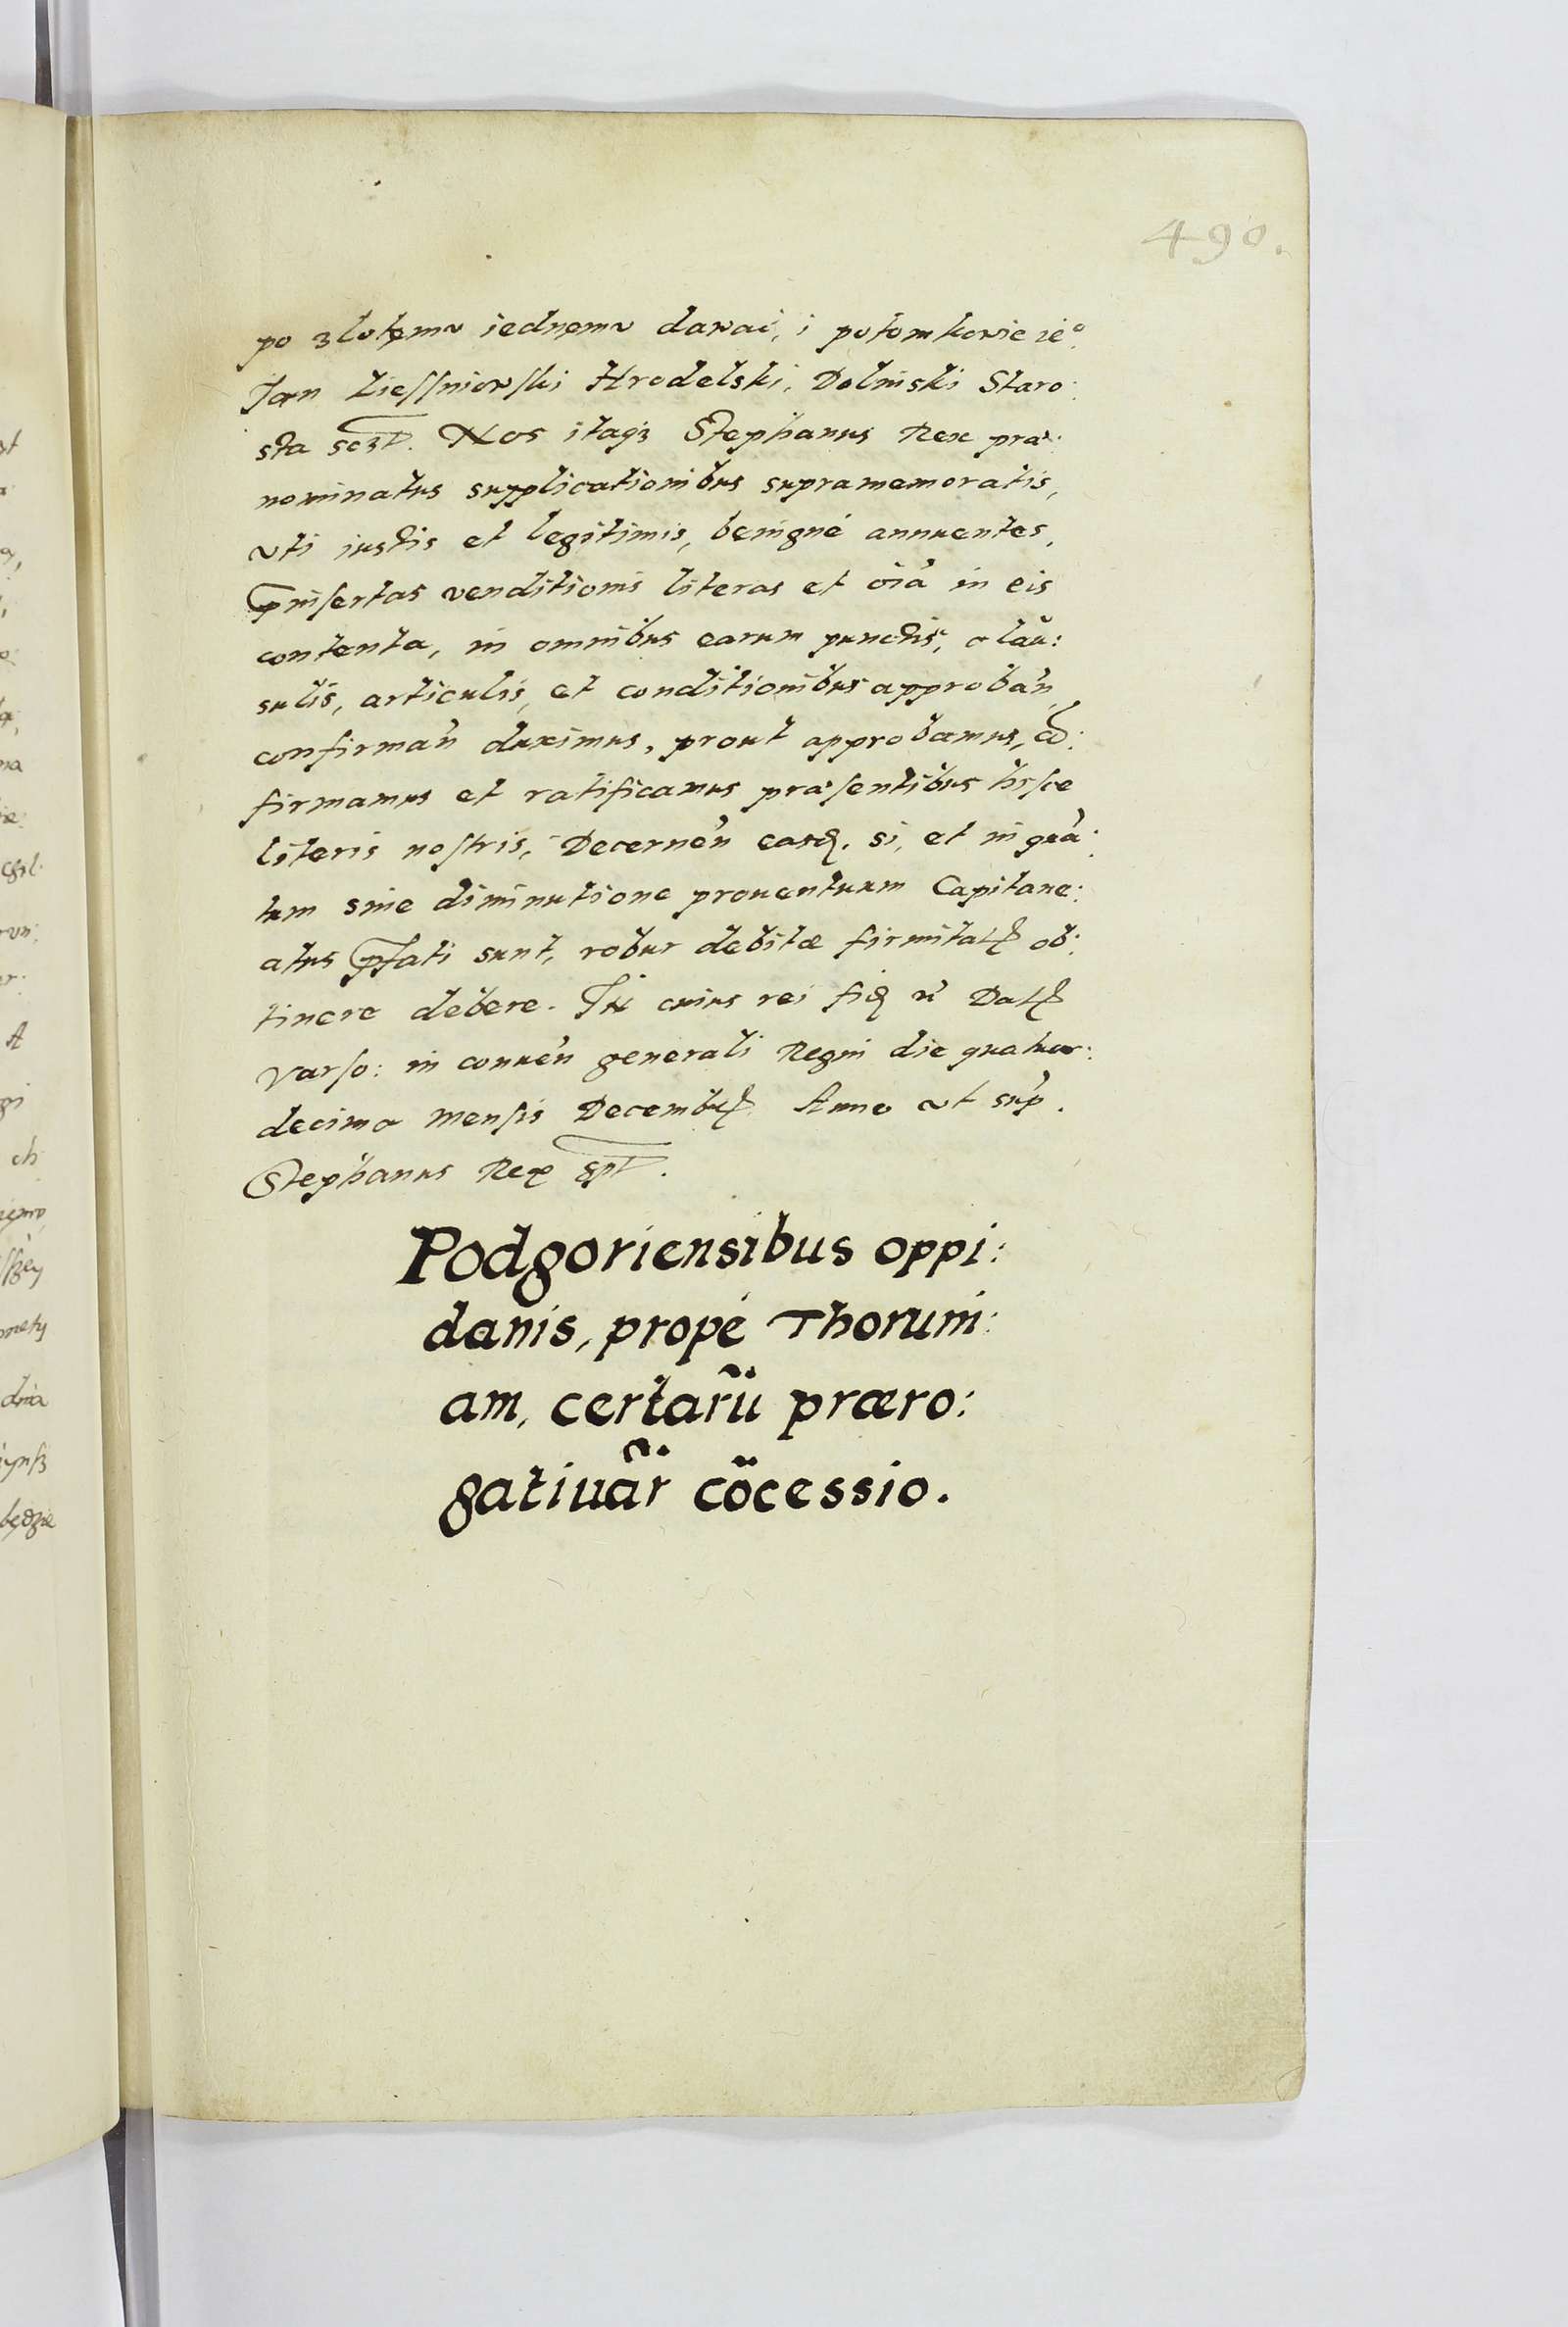 490.
po złotęmu iednęmu dawać, i potomkowie ie°.
Jan Liessniowski Hrodelski, Dolinski Staro:
sta sczt. Nos itaqз Stephanus Rex præ:
nominatus supplicationibus supramemoratis,
vti iustis et legitimis, benigné annuentes,
p̄insertas venditionis literas et oīa in eis
contenta, in omnibus earum punctis, clau:
sulis, articulis, et conditionibus approban̄,
confirman̄ duximus, prout approbamus, cō:
firmamus et ratificamus præsentibus hisce
literis nostris, Decernen̄ easdꝫ. si, et in quā:
tum sine diminutione prouentuum Capitane:
atus p̄fati sunt, robur debitæ firmitatꝭ ob:
tinere debere. In cuius rei fidꝫ r̄ Datꝭ
Varso: in conuen̄ generali Regni die quatuor:
decima Mensis Decembrꝭ Anno vt sup̄.
Stephanus Rex spt.
Podgoriensibus oppi:
danis, propé Thoruni:
am, certarū præro:
gatiuar̄ cōcessio.